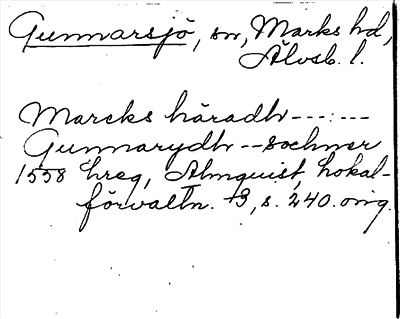 Gunnarsjö, sn, Marks hd,
Älvsb. l.
Marcks häradh --- : ---
Gunnarydh -- sochner
1558 hreg, Almquist, Lokal-
förvaltn. +3, s. 240. orig.